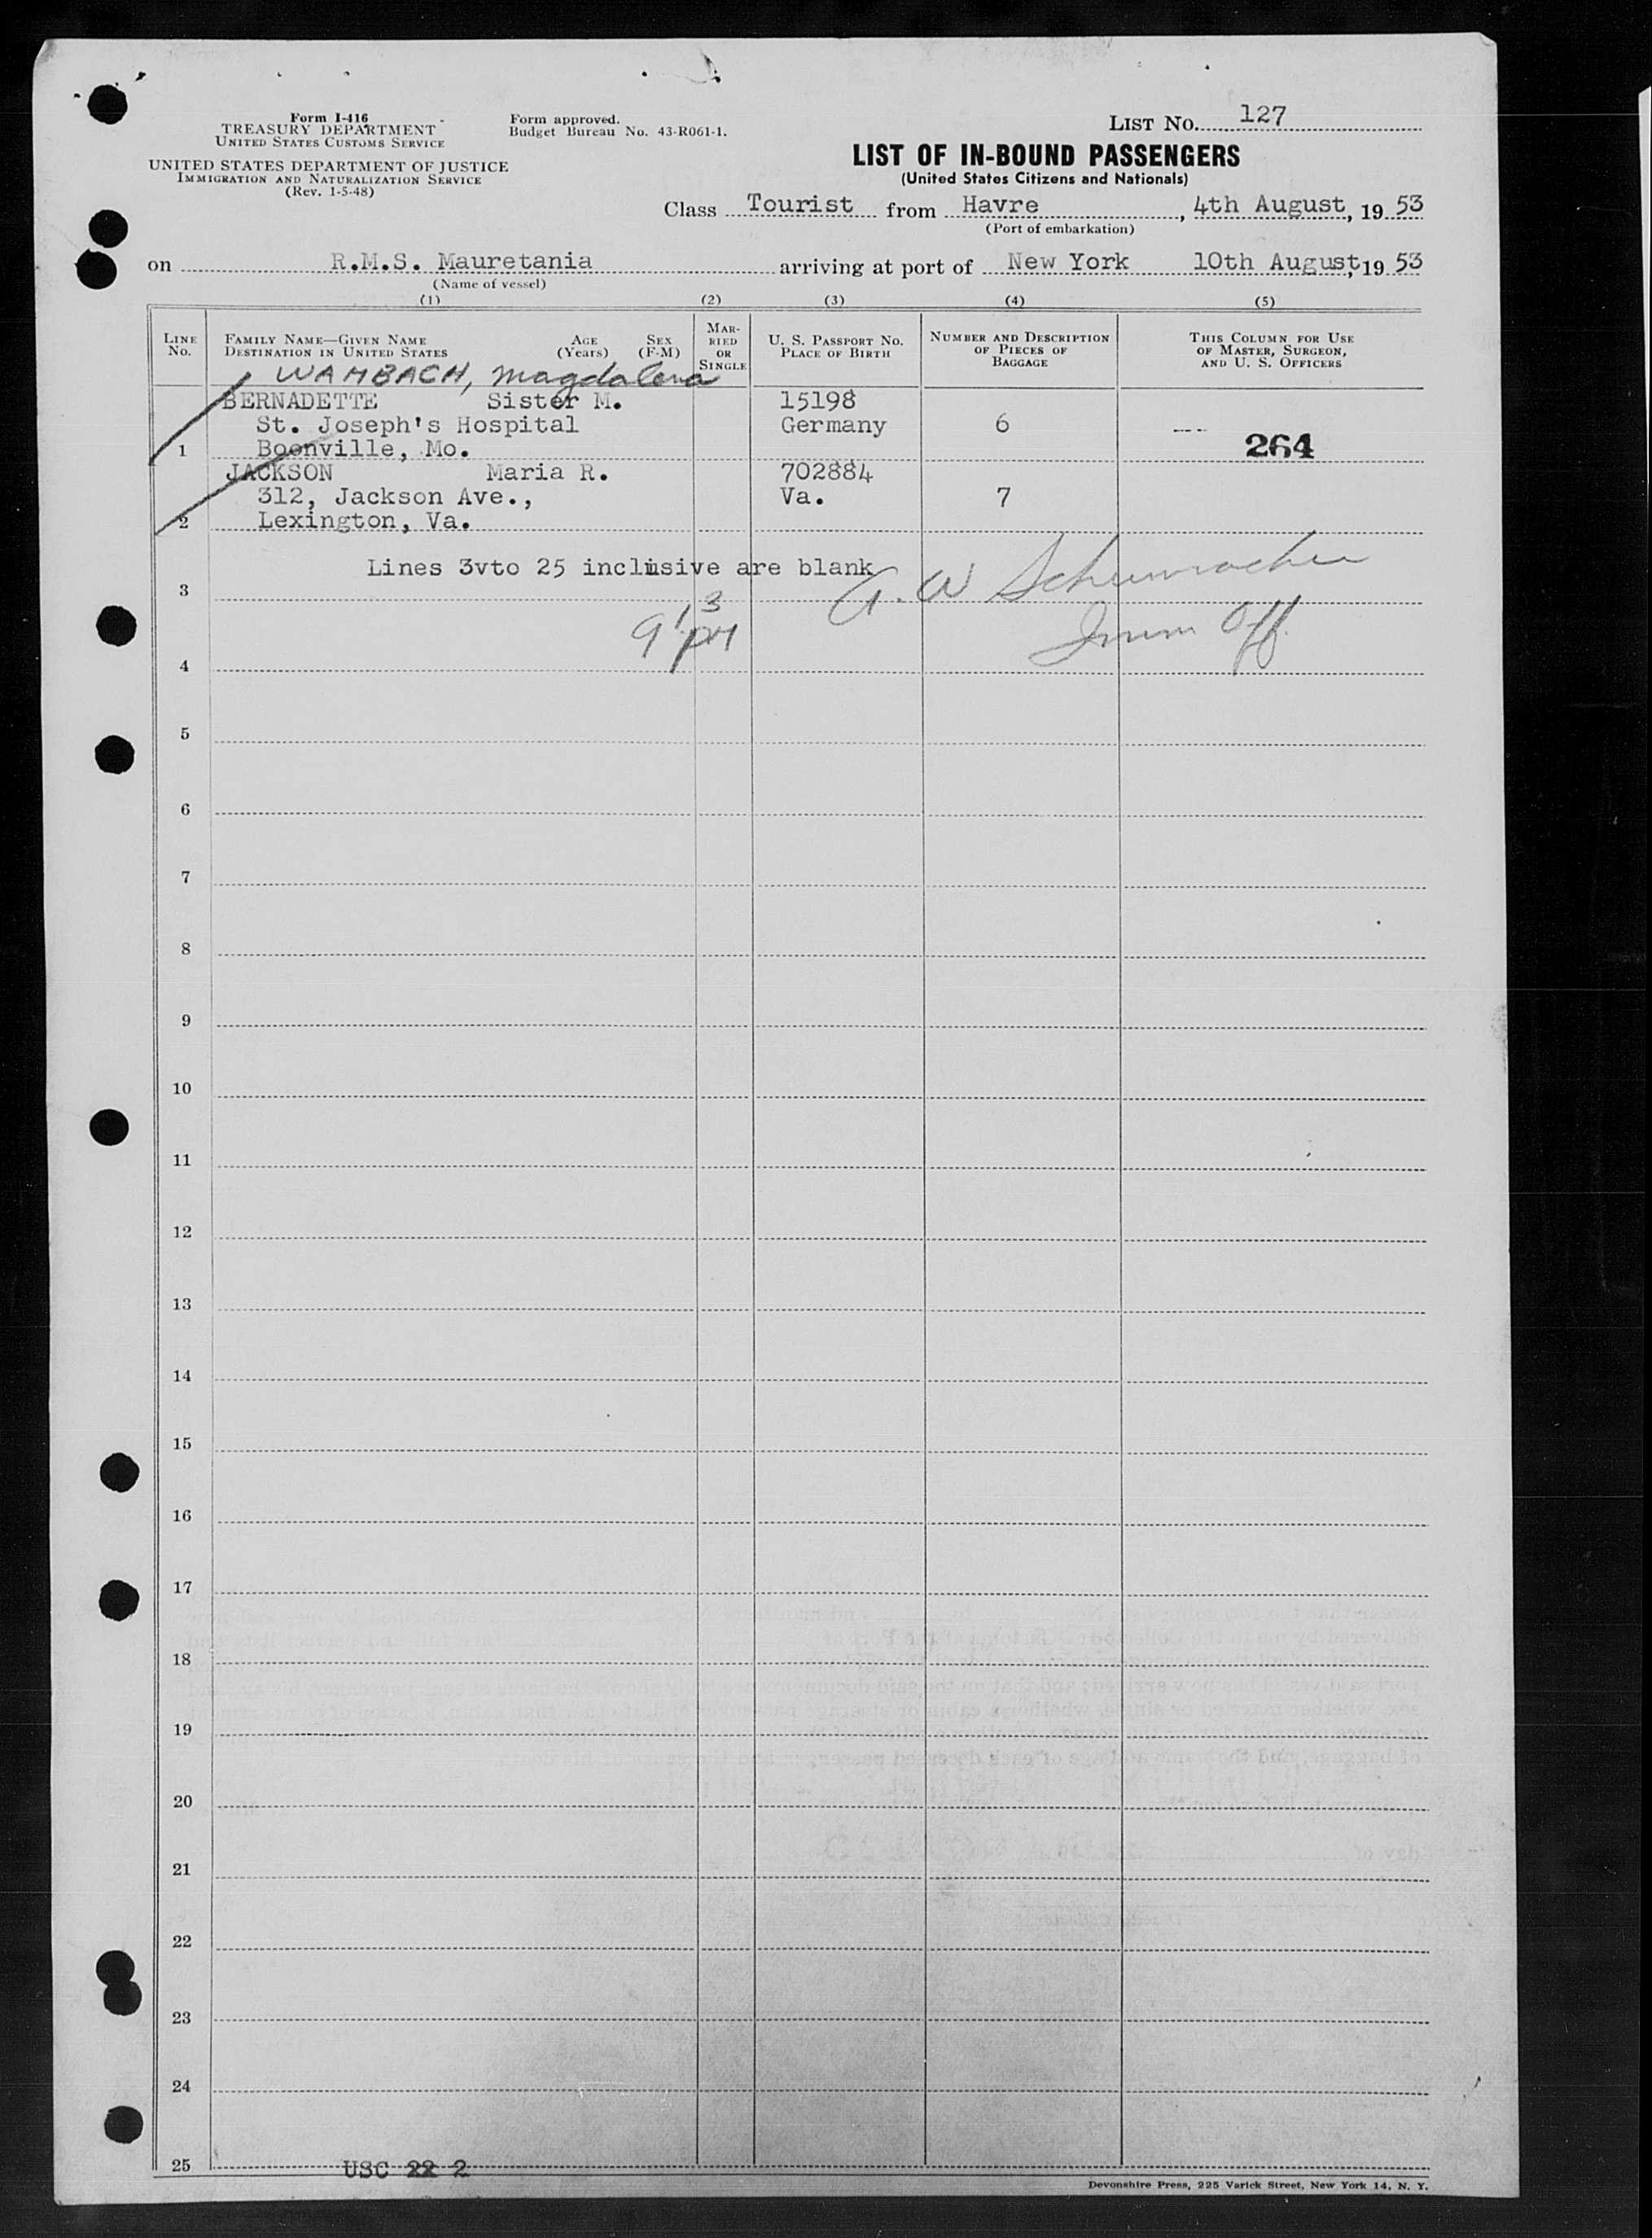 Form I-416
TREASURY DEPARTMENT
UNITED STATES CUSTOMS SERVICE
UNITED STATES DEPARTMENT OF JUSTICE
IMMIGRATION AND NATURALIZATION SERVICE
(Rev. 1-5-48)
Form approved.
Budget Bureau No. 43-R061-1.
LIST No. 127
LIST OF IN-BOUND PASSENGERS
(United States Citizens and Nationals)
Class Tourist from Havre, 4th August, 19 53
(Port of embarkation)
on R.M.S. Mauretania arriving at port of New York 10th August, 19 53
(Name of vessel)
(1) (2) (3) (4) (5)
LINE No.
FAMILY NAME—GIVEN NAME
DESTINATION IN UNITED STATES
AGE (Years)
SEX (F-M)
MARRIED OR SINGLE
U. S. PASSPORT No.
PLACE OF BIRTH
NUMBER AND DESCRIPTION
OF PIECES OF
BAGGAGE
THIS COLUMN FOR USE
OF MASTER, SURGEON,
AND U. S. OFFICERS
WAMBACH, Magdalena
BERNADETTE Sister M. 15198
St. Joseph's Hospital Germany 6
1 Boonville, Mo. 264
JACKSON Maria R. 702884
312, Jackson Ave., Va. 7
2 Lexington, Va.
Lines 3vto 25 inclusive are blank
A. W Schumacher
3
Imm Off.
4
5
6
7
8
9
10
11
12
13
14
15
16
17
18
19
20
21
22
23
24
25 USC 22 2
Devonshire Press, 225 Varick Street, New York 14, N. Y.